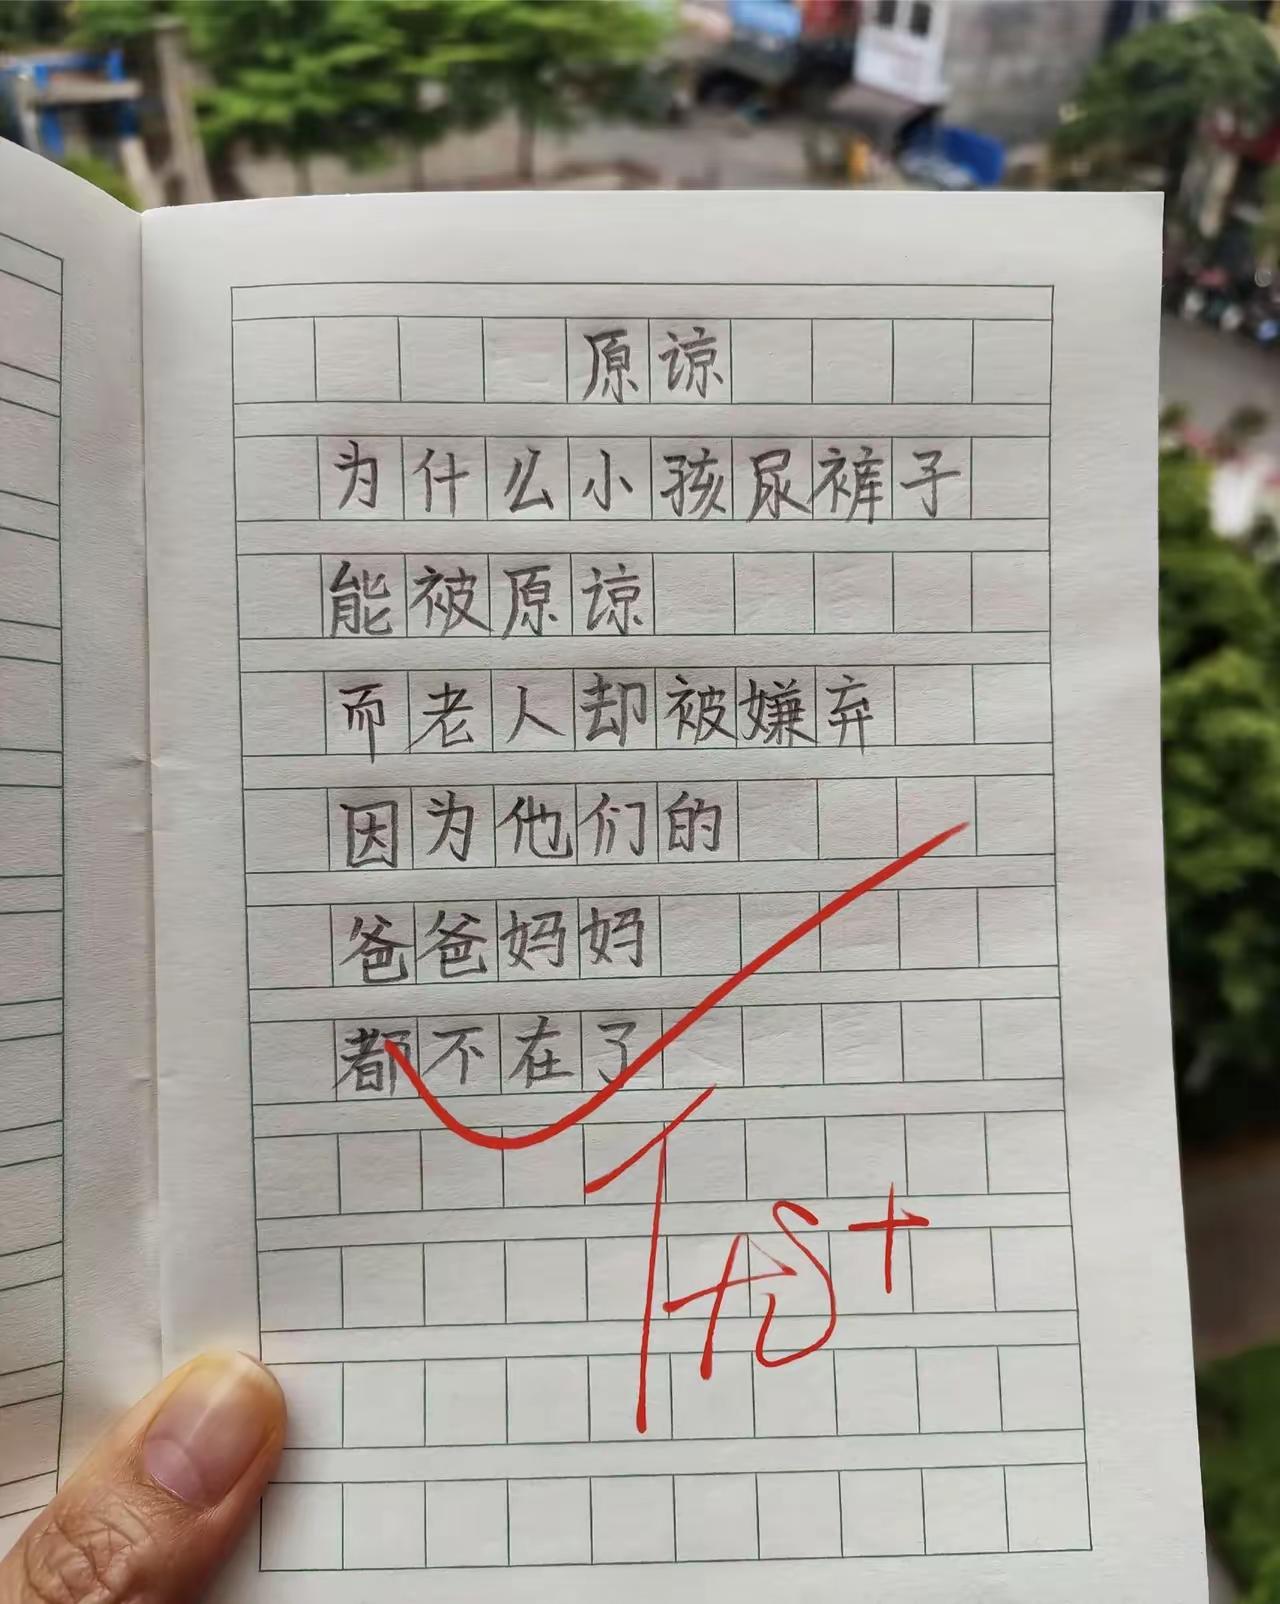 原谅
为什么小孩尿裤子
能被原谅
而老人却被嫌弃
因为他们的
爸爸妈妈
都不在了